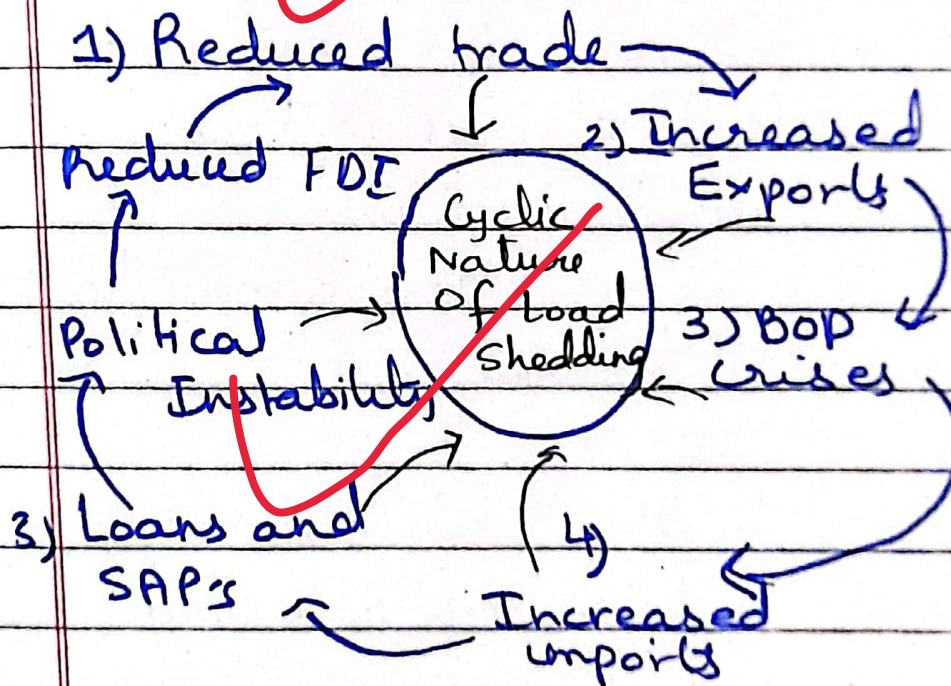 1) Reduced trade
2) Increased
Exports
Reduced FDI
Cyclic
Nature
Of Load
Shedding
3) BOP
crises
Political
Instability
3) Loans and
SAP's
4)
Increased
imports